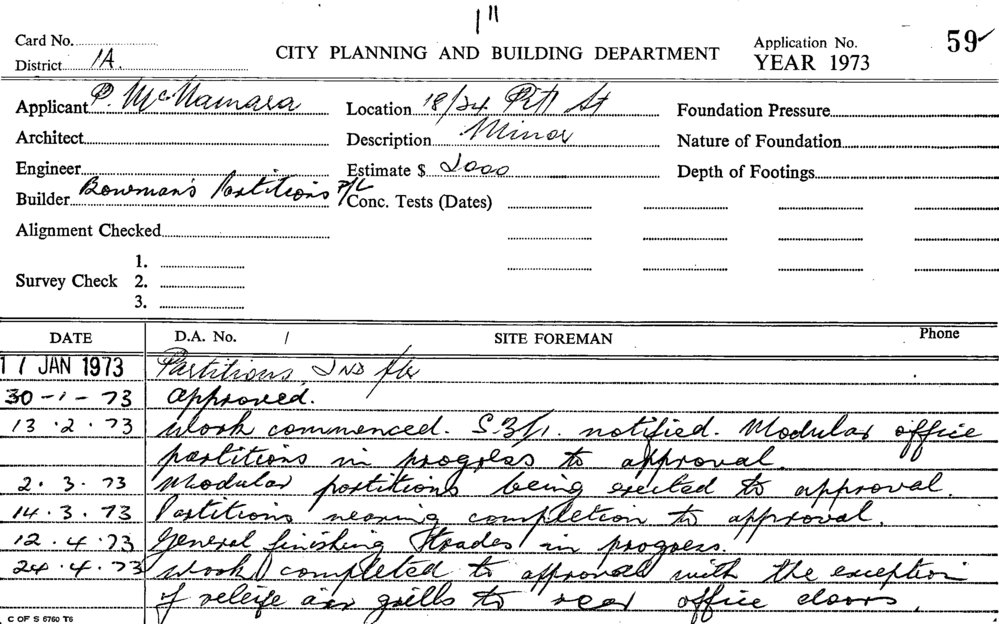 1"
Card No.
District 1A.
CITY PLANNING AND BUILDING DEPARTMENT
Application No. 59
YEAR 1973
Applicant P. McNamara
Location 18/24 Pitt St
Foundation Pressure
Architect
Description Minor
Nature of Foundation
Engineer
Estimate $ 2000
Depth of Footings
Builder Bowman's Partitions P/L
Conc. Tests (Dates)
Alignment Checked
Survey Check
1.
2.
3.
DATE
D.A. No. /
SITE FOREMAN
Phone
17 JAN 1973 Partitions, 2ND flr
30-1-73 Approved.
13.2.73 Work commenced. S.3/1. notified. Modular office
partitions in progress to approval.
2.3.73 Modular partitions being erected to approval.
14.3.73 Partitions nearing completion to approval.
12.4.73 General finishing trades in progress.
24.4.73 Work completed to approval with the exception
of air grills to rear office doors.
C OF S 6760 T6